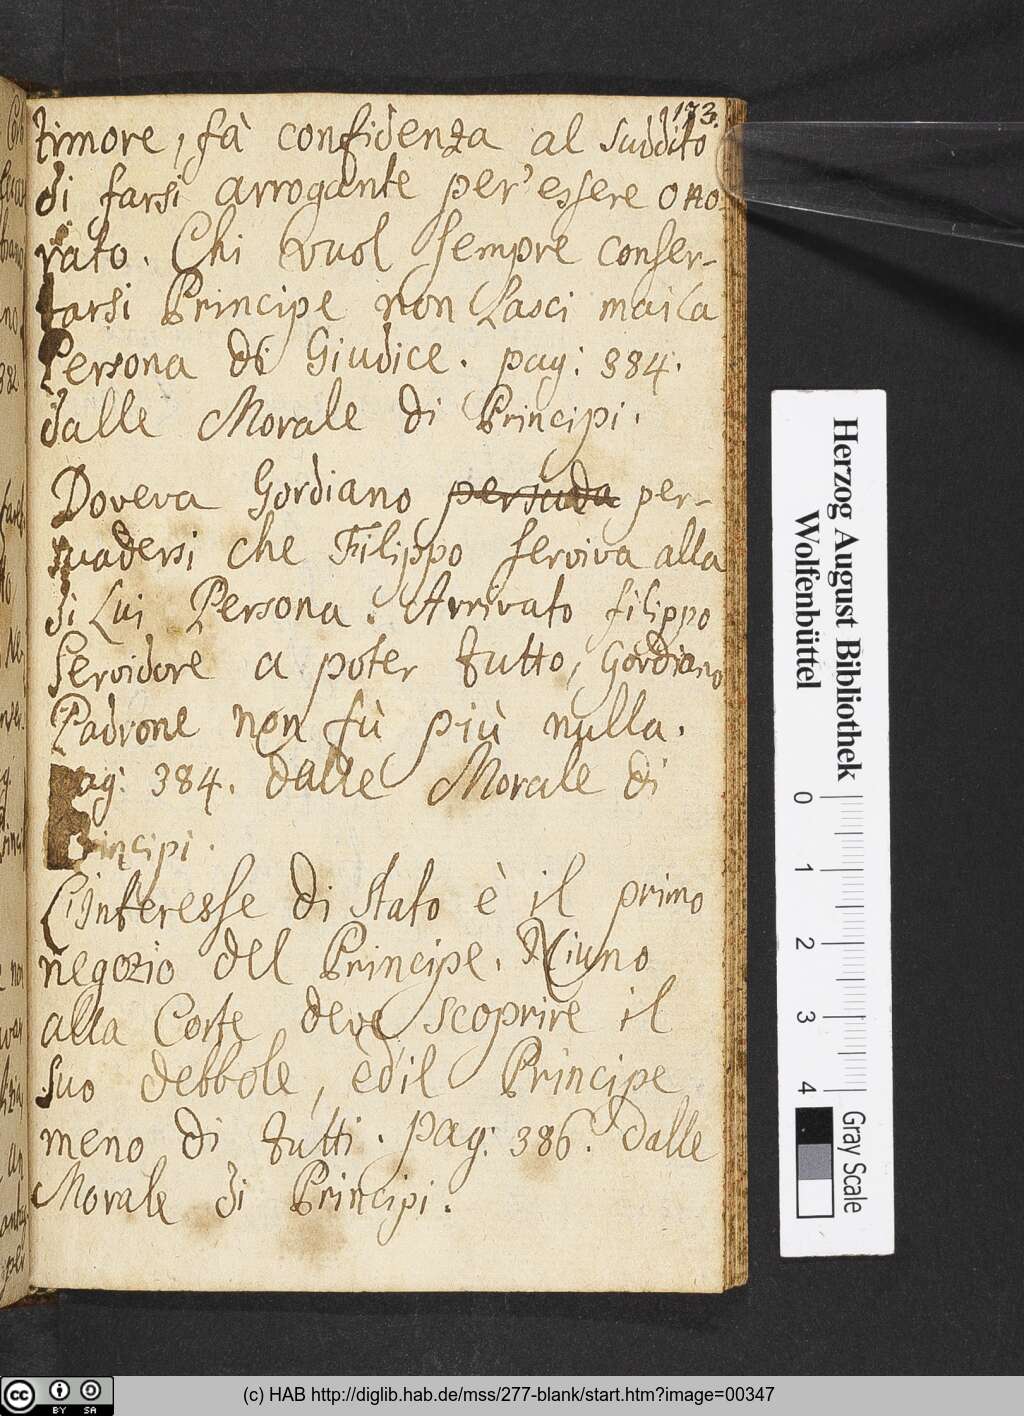 173.
timore, fà confidenza al suddito
di farsi arrogante per'essere ono
rato. Chi vuol sempre conser-
varsi Principe non Lasci mai la
Persona di Giudice. pag: 384.
dalle Morale di Principi.
Doveva Gordiano persuda per-
suadersi che Filippo serviva alla
di Lui Persona. Arrivato filippo
Servidore a poter tutto, Gordiano
Padrone non fù più nulla.
pag: 384. dalle Morale di
Principi.
L'interesse di Stato è il primo
negozio del Principe.
alla Corte deve scoprire il
suo debbole, ed'il Principe
meno di tutti. pag: 386. dalle
Morale di Principi.
Herzog August Bibliothek
Wolfenbüttel
0 1 2 3 4
Gray Scale
cc BY SA
(c) HAB http://diglib.hab.de/mss/277-blank/start.htm?image=00347